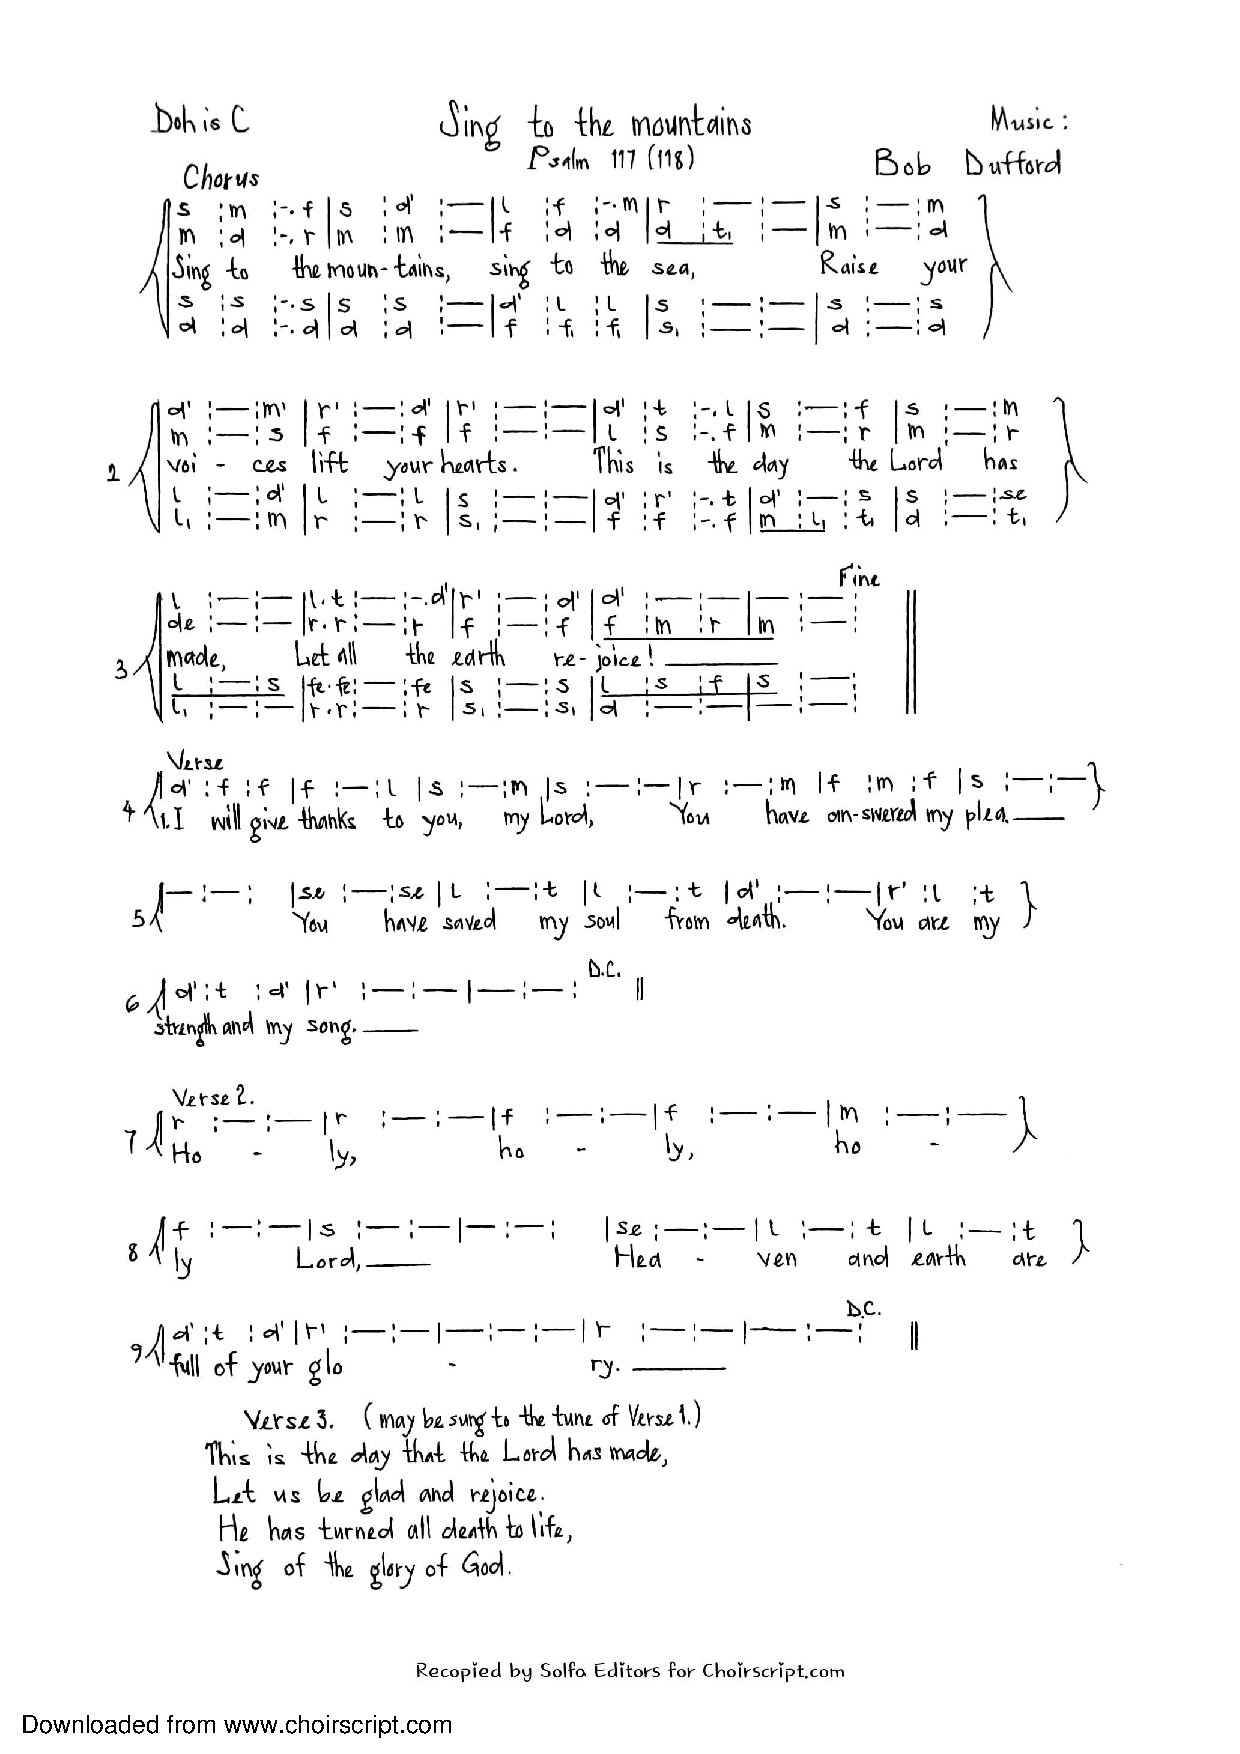 Doh is C Sing to the mountains Music :
Psalm 117 (118) Bob Dufford
Chorus
s :m :-.f |s :d' :— |l :f :-.m |r :— :— |s :— :m
m :d :-.r |m :m :— |f :d :d |d :t₁ :— |m :— :d
Sing to the moun-tains, sing to the sea, Raise your
s :s :-.s |s :s :— |d' :l :l |s :— :— |s :— :s
d :d :-.d |d :d :— |f :f₁ :f₁ |s₁ :— :— |d :— :d
d' :— :m' |r' :— :d' |r' :— :— |d' :t :-.l |s :— :f |s :— :m
m :— :s |f :— :f |f :— :— |l :s :-.f |m :— :r |m :— :r
2 voi - ces lift your hearts. This is the day the Lord has
l :— :d' |l :— :l |s :— :— |d' :r' :-.t |d' :— :s |s :— :se
l₁ :— :m |r :— :r |s₁ :— :— |f :f :-.f |m :l₁ :t₁ |d :— :t₁
Fine
l :— :— |l.t :— :-.d' |r' :— :d' |d' :— :— |— :— :
de :— :— |r.r :— :r |f :— :f |f :m :r |m :— :
3 made, Let all the earth re-joice!
l :— :s |fe.fe :— :fe |s :— :s |l :s :f |s :— :
l₁ :— :— |r.r :— :r |s₁ :— :s₁ |d :— :— |— :— :
Verse
4 d' :f :f |f :— :l |s :— :m |s :— :— |r :— :m |f :m :f |s :— :—
1. I will give thanks to you, my Lord, You have an-swered my plea.
5 — :— : |se :— :se |l :— :t |l :— :t |d' :— :— |r' :l :t
You have saved my soul from death. You are my
D.C.
6 d' :t :d' |r' :— :— |— :— : ||
strength and my song.
Verse 2.
7 r :— :— |r :— :— |f :— :— |f :— :— |m :— :—
Ho - ly, ho - ly, ho -
8 f :— :— |s :— :— |— :— : |se :— :— |l :— :t |l :— :t
ly Lord, Hea - ven and earth are
D.C.
9 d' :t :d' |r' :— :— |— :— :— |r :— :— |— :— : ||
full of your glo - ry.
Verse 3. (may be sung to the tune of Verse 1.)
This is the day that the Lord has made,
Let us be glad and rejoice.
He has turned all death to life,
Sing of the glory of God.
Recopied by Solfa Editors for Choirscript.com
Downloaded from www.choirscript.com